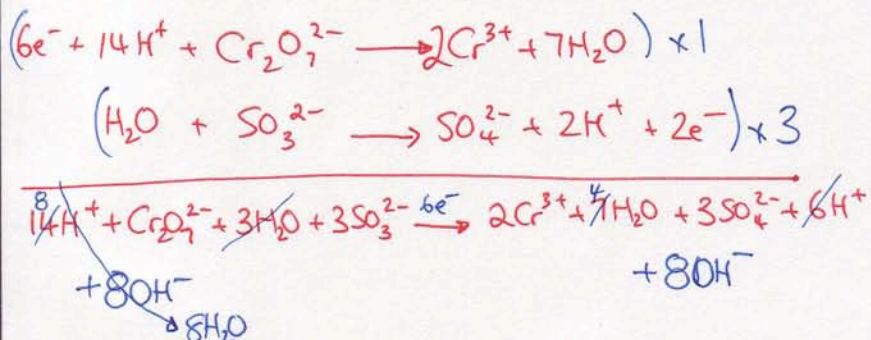 (6e⁻ + 14H⁺ + Cr₂O₇²⁻ → 2Cr³⁺ + 7H₂O) × 1
(H₂O + SO₃²⁻ → SO₄²⁻ + 2H⁺ + 2e⁻) × 3
8 14H⁺ + Cr₂O₇²⁻ + 3H₂O + 3SO₃²⁻ 6e⁻ → 2Cr³⁺ + 4 7H₂O + 3SO₄²⁻ + 6H⁺
+8OH⁻ +8OH⁻
8H₂O